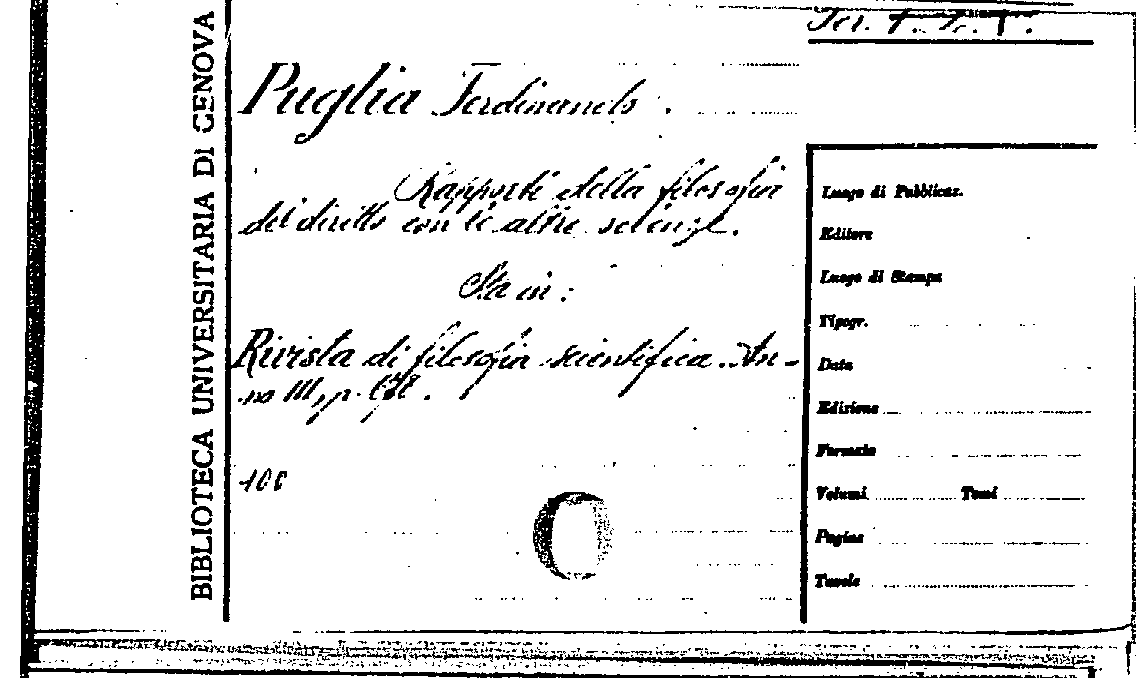 BIBLIOTECA UNIVERSITARIA DI GENOVA
Puglia Ferdinando.
Rapporti della filosofia
del diritto con le altre scienze.
Sta in:
Rivista di filosofia scientifica. An-
no III, p.
Luogo di Pubblicaz.
Editore
Luogo di Stampa
Tipogr.
Data
Edizione
Formato
Volumi Tomi
Pagine
Tavole